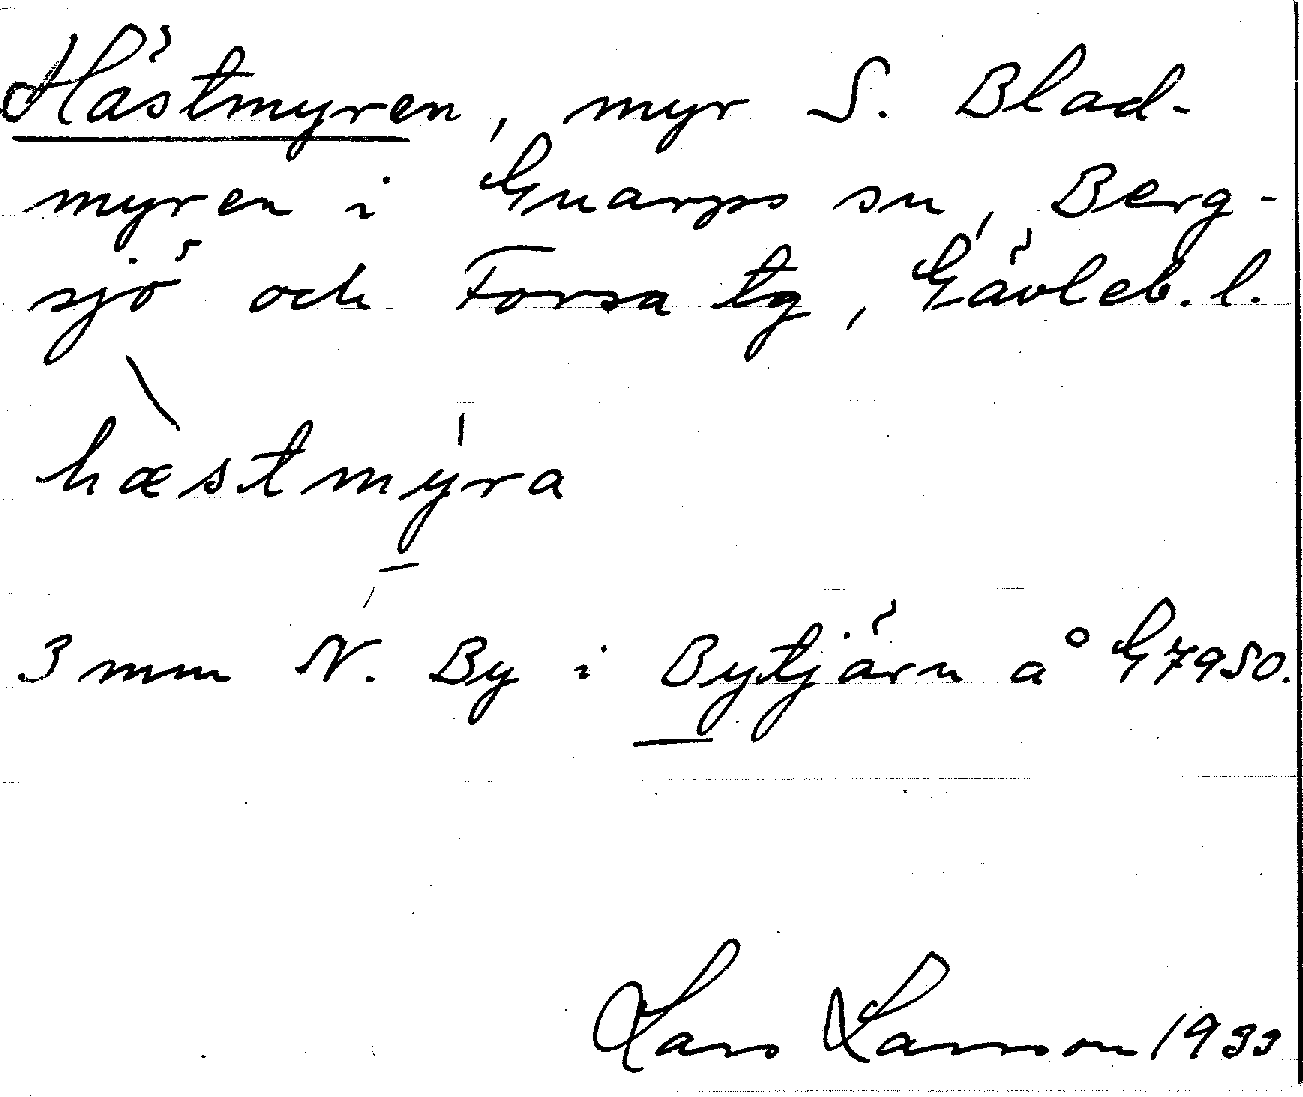 Hästmyren, myr S. Blad-
myren i Gnarps sn, Berg-
sjö och Forsa tg, Gävleb. l.
hæ̀stmy̱ra
3 mm N. By i Bytjärn å G7950.
Lars Larsson 1933